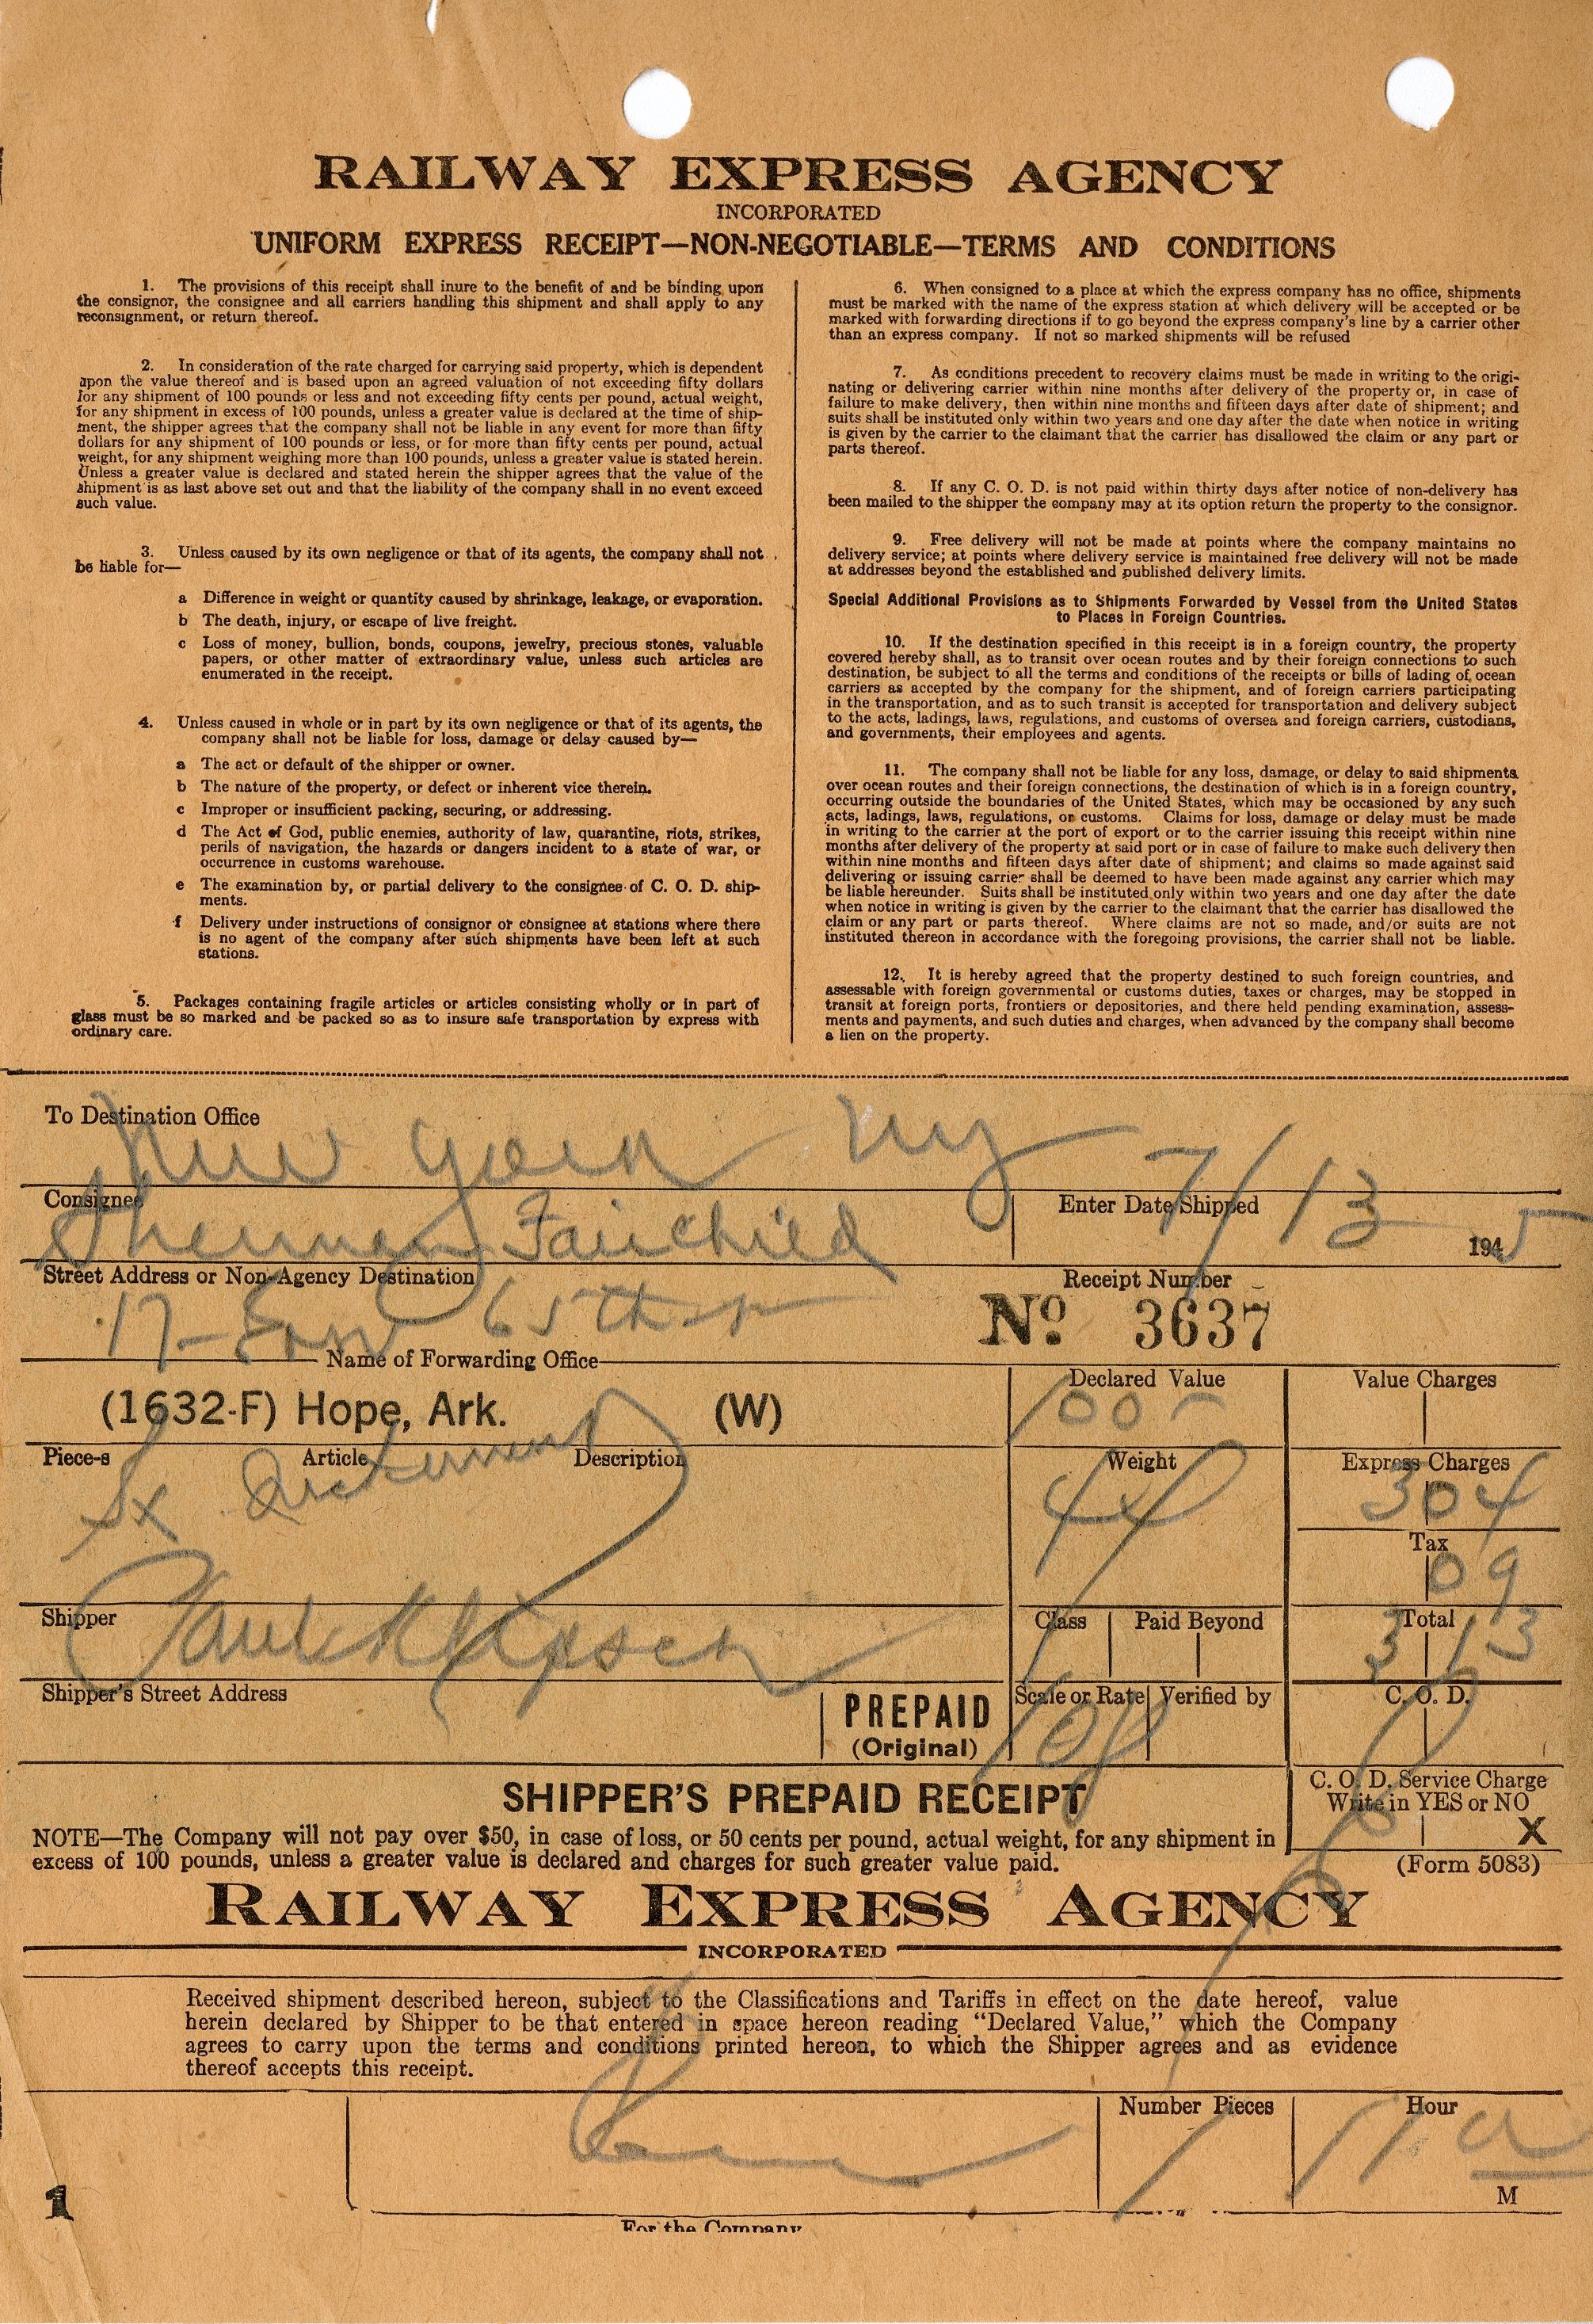 RAILWAY EXPRESS AGENCY
INCORPORATED
UNIFORM EXPRESS RECEIPT—NON-NEGOTIABLE—TERMS AND CONDITIONS
1. The provisions of this receipt shall inure to the benefit of and be binding upon
the consignor, the consignee and all carriers handling this shipment and shall apply to any
reconsignment, or return thereof.
2. In consideration of the rate charged for carrying said property, which is dependent
upon the value thereof and is based upon an agreed valuation of not exceeding fifty dollars
for any shipment of 100 pounds or less and not exceeding fifty cents per pound, actual weight,
for any shipment in excess of 100 pounds, unless a greater value is declared at the time of ship-
ment, the shipper agrees that the company shall not be liable in any event for more than fifty
dollars for any shipment of 100 pounds or less, or for more than fifty cents per pound, actual
weight, for any shipment weighing more than 100 pounds, unless a greater value is stated herein.
Unless a greater value is declared and stated herein the shipper agrees that the value of the
shipment is as last above set out and that the liability of the company shall in no event exceed
such value.
3. Unless caused by its own negligence or that of its agents, the company shall not
be liable for—
a Difference in weight or quantity caused by shrinkage, leakage, or evaporation.
b The death, injury, or escape of live freight.
c Loss of money, bullion, bonds, coupons, jewelry, precious stones, valuable
papers, or other matter of extraordinary value, unless such articles are
enumerated in the receipt.
4. Unless caused in whole or in part by its own negligence or that of its agents, the
company shall not be liable for loss, damage or delay caused by—
a The act or default of the shipper or owner.
b The nature of the property, or defect or inherent vice therein.
c Improper or insufficient packing, securing, or addressing.
d The Act of God, public enemies, authority of law, quarantine, riots, strikes,
perils of navigation, the hazards or dangers incident to a state of war, or
occurrence in customs warehouse.
e The examination by, or partial delivery to the consignee of C. O. D. ship-
ments.
f Delivery under instructions of consignor or consignee at stations where there
is no agent of the company after such shipments have been left at such
stations.
5. Packages containing fragile articles or articles consisting wholly or in part of
glass must be so marked and be packed so as to insure safe transportation by express with
ordinary care.
6. When consigned to a place at which the express company has no office, shipments
must be marked with the name of the express station at which delivery will be accepted or be
marked with forwarding directions if to go beyond the express company's line by a carrier other
than an express company. If not so marked shipments will be refused
7. As conditions precedent to recovery claims must be made in writing to the origi-
nating or delivering carrier within nine months after delivery of the property or, in case of
failure to make delivery, then within nine months and fifteen days after date of shipment; and
suits shall be instituted only within two years and one day after the date when notice in writing
is given by the carrier to the claimant that the carrier has disallowed the claim or any part or
parts thereof.
8. If any C. O. D. is not paid within thirty days after notice of non-delivery has
been mailed to the shipper the company may at its option return the property to the consignor.
9. Free delivery will not be made at points where the company maintains no
delivery service; at points where delivery service is maintained free delivery will not be made
at addresses beyond the established and published delivery limits.
Special Additional Provisions as to Shipments Forwarded by Vessel from the United States
to Places in Foreign Countries.
10. If the destination specified in this receipt is in a foreign country, the property
covered hereby shall, as to transit over ocean routes and by their foreign connections to such
destination, be subject to all the terms and conditions of the receipts or bills of lading of ocean
carriers as accepted by the company for the shipment, and of foreign carriers participating
in the transportation, and as to such transit is accepted for transportation and delivery subject
to the acts, ladings, laws, regulations, and customs of oversea and foreign carriers, custodians,
and governments, their employees and agents.
11. The company shall not be liable for any loss, damage, or delay to said shipments
over ocean routes and their foreign connections, the destination of which is in a foreign country,
occurring outside the boundaries of the United States, which may be occasioned by any such
acts, ladings, laws, regulations, or customs. Claims for loss, damage or delay must be made
in writing to the carrier at the port of export or to the carrier issuing this receipt within nine
months after delivery of the property at said port or in case of failure to make such delivery then
within nine months and fifteen days after date of shipment; and claims so made against said
delivering or issuing carrier shall be deemed to have been made against any carrier which may
be liable hereunder. Suits shall be instituted only within two years and one day after the date
when notice in writing is given by the carrier to the claimant that the carrier has disallowed the
claim or any part or parts thereof. Where claims are not so made, and/or suits are not
instituted thereon in accordance with the foregoing provisions, the carrier shall not be liable.
12. It is hereby agreed that the property destined to such foreign countries, and
assessable with foreign governmental or customs duties, taxes or charges, may be stopped in
transit at foreign ports, frontiers or depositories, and there held pending examination, assess-
ments and payments, and such duties and charges, when advanced by the company shall become
a lien on the property.
To Destination Office
New York NY
Consignee
Sherman Fairchild
Enter Date Shipped
7/13 1945
Street Address or Non-Agency Destination
17- East 65th
Receipt Number
No. 3637
Name of Forwarding Office
(1632-F) Hope, Ark. (W)
Declared Value
100-
Value Charges
Piece-s Article Description
Sx
Weight
44
Express Charges
3 04
Tax
09
Shipper
Paul Klipsch
Class Paid Beyond
1
Total
3 13
Shipper's Street Address
PREPAID
(Original)
Scale or Rate Verified by
C. O. D.
SHIPPER'S PREPAID RECEIPT
C. O. D. Service Charge
Write in YES or NO
X
NOTE—The Company will not pay over $50, in case of loss, or 50 cents per pound, actual weight, for any shipment in
excess of 100 pounds, unless a greater value is declared and charges for such greater value paid.
(Form 5083)
RAILWAY EXPRESS AGENCY
INCORPORATED
Received shipment described hereon, subject to the Classifications and Tariffs in effect on the date hereof, value
herein declared by Shipper to be that entered in space hereon reading "Declared Value," which the Company
agrees to carry upon the terms and conditions printed hereon, to which the Shipper agrees and as evidence
thereof accepts this receipt.
Number Pieces
1
Hour
11 a
M
1
For the Company